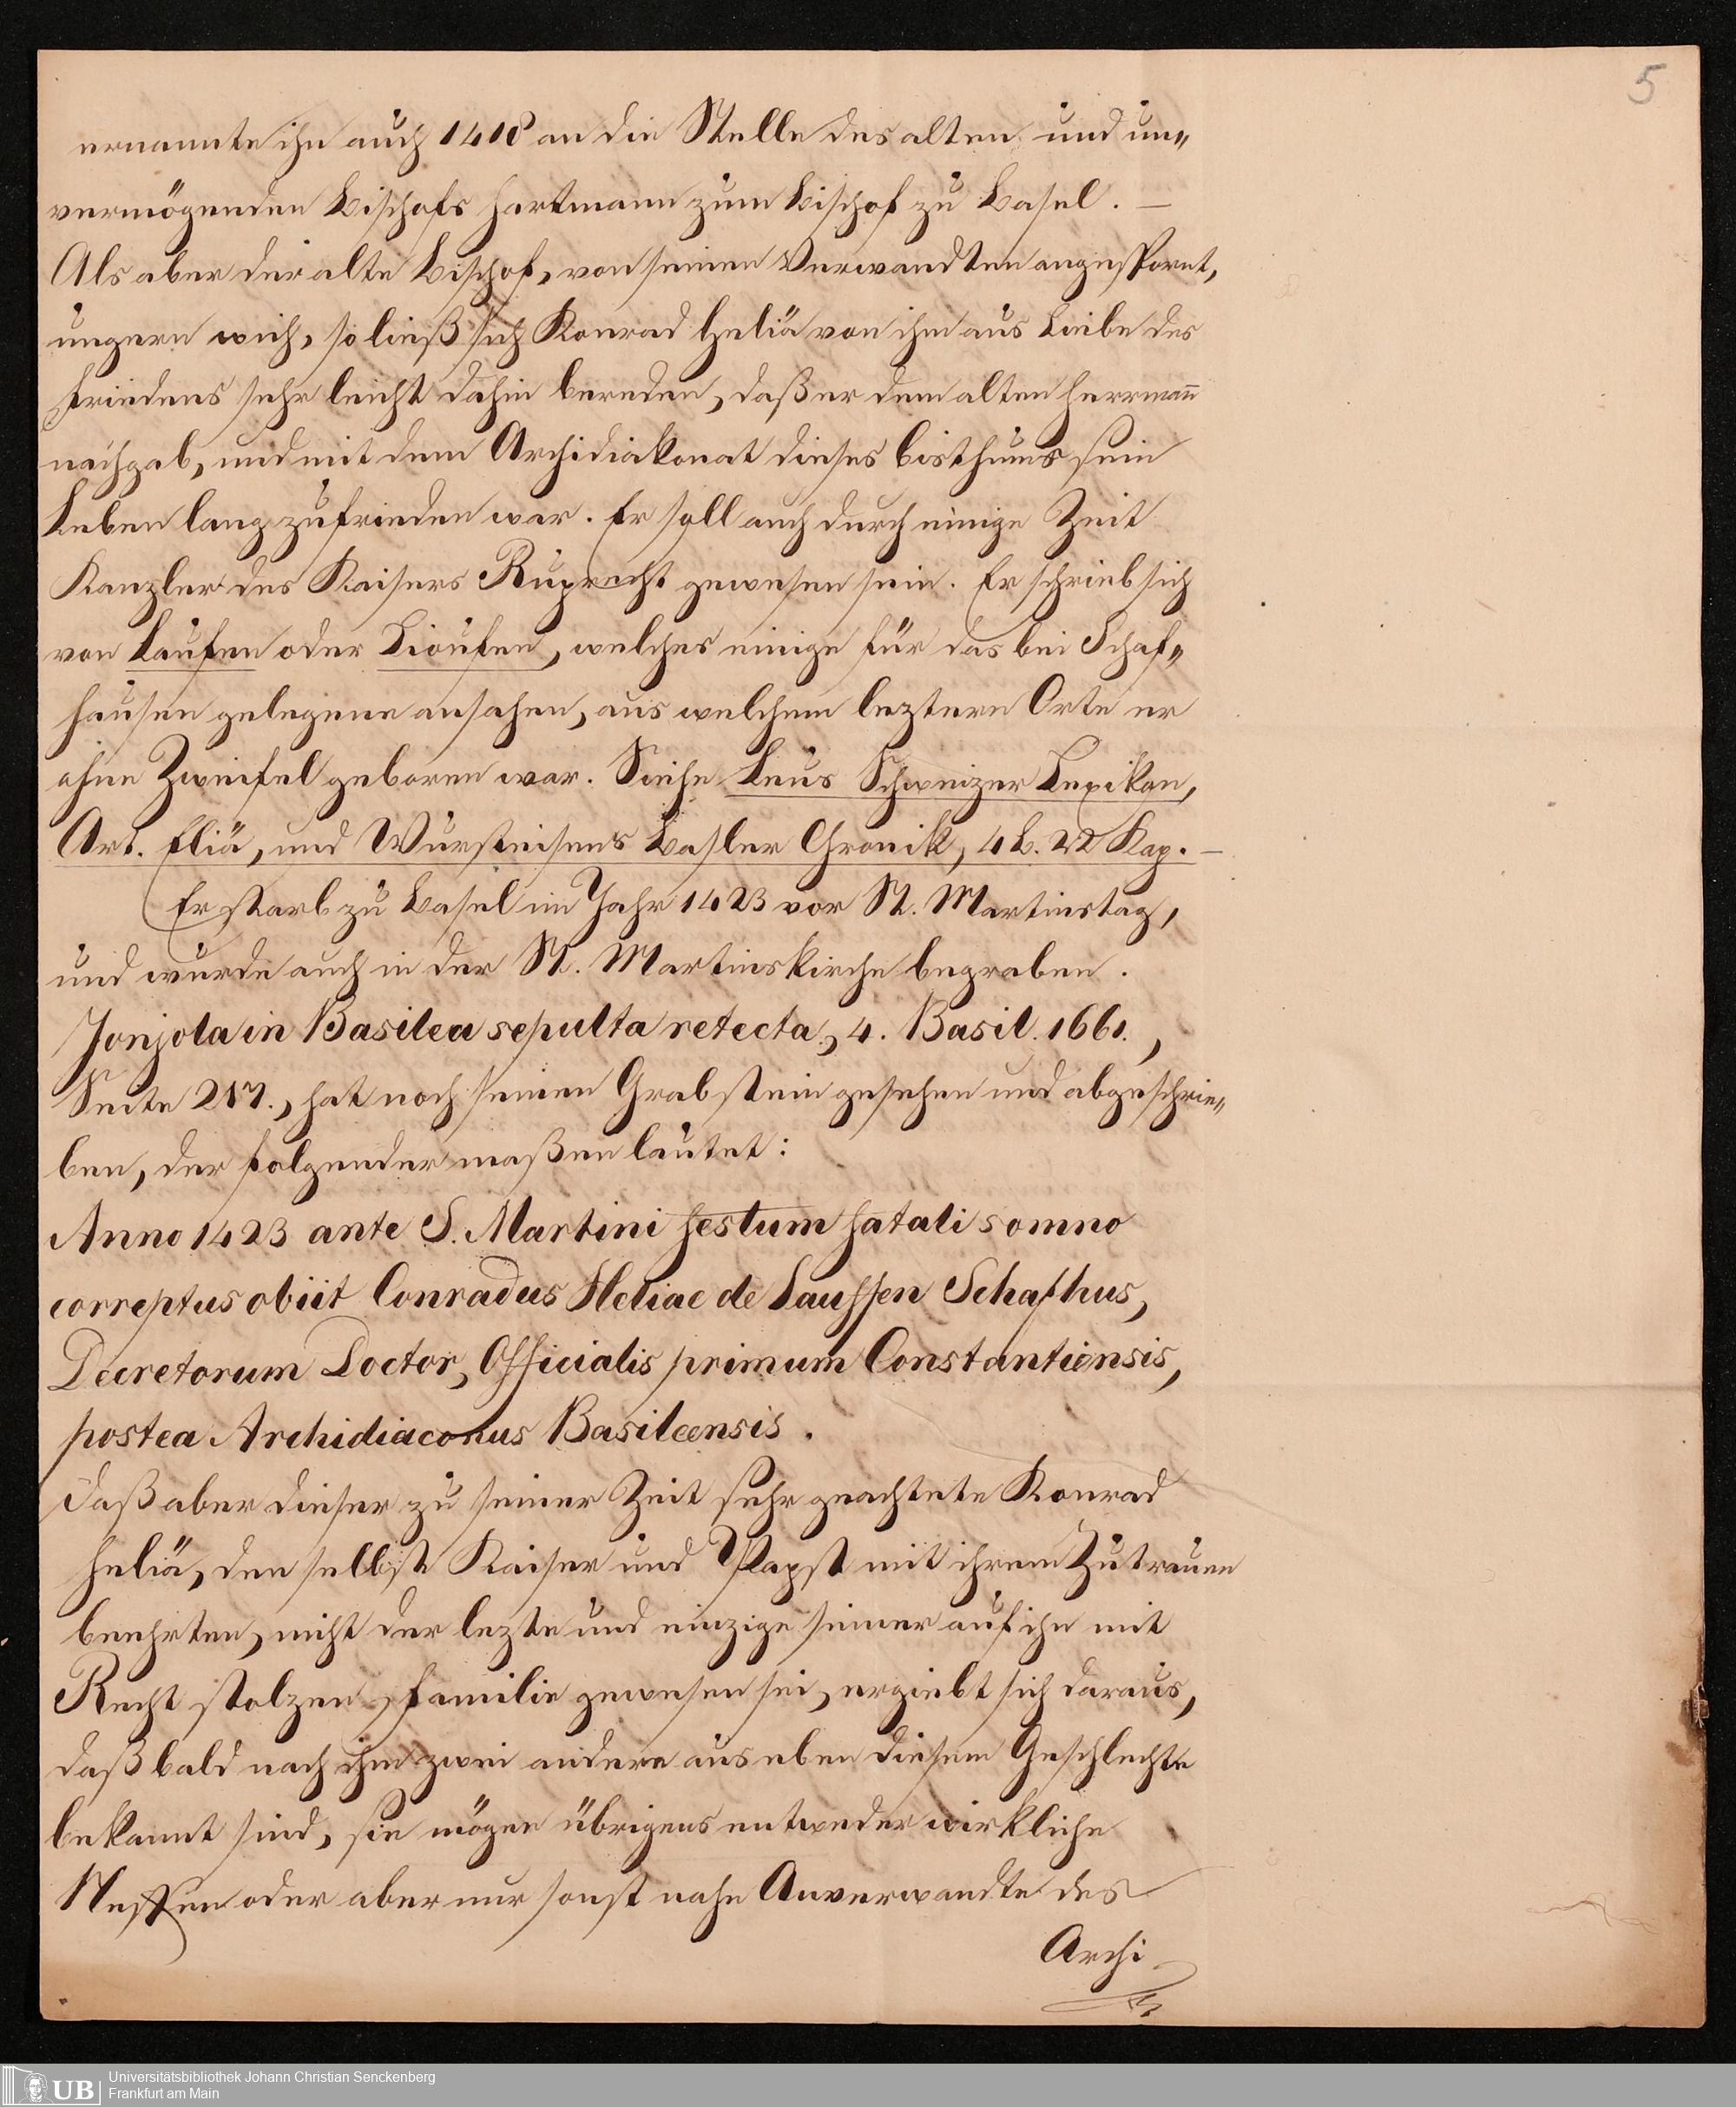 5
ernannte ihn auch 1418 an die Stelle des alten und un„
vermögenden Bischofs Hartmann zum Bischof zu Basel. —
Als aber der alte Bischof, von seinen Verwandten angespornt,
ungern wich, so ließ sich Konrad Heliä von ihm aus Liebe des
Friedens sehr leicht dahin bereden, daß er dem alten Herrman̄
nachgab, und mit dem Archidiakonat dieses Bisthums sein
Leben lang zufrieden war. Er soll auch durch einige Zeit
Kanzler des Kaisers Ruprecht gewesen sein. Er schrieb sich
von Laufen oder Lioufen, welches einige für das bei Schaf„
hausen gelegene ansahen, aus welchem leztern Orte er
ohne Zweifel geboren war. Siehe Leus Schweizer Lexikon,
Art. Eliä, und Wursteisens Basler Chronik, 4 B. 22 Kap. —
Er starb zu Basel im Jahr 1423 vor St. Martinstag,
und wurde auch in der St. Martinskirche begraben.
Jonjola in Basilea sepulta retecta, 4. Basil. 1661.,
Seite 217., hat noch seinen Grabstein gesehen und abgeschrie„
ben, der folgender maßen lautet:
Anno 1423 ante S. Martini festum fatali somno
correptus obiit Conradus Heliae de Lauffen Schafhus,
Decretorum Doctor, Officialis primum Constantiensis,
postea Archidiaconus Basileensis.
Daß aber dieser zu seiner Zeit sehr geachtete Konrad
Heliä, den selbst Kaiser und Papst mit ihrem Zutrauen
beehrten, nicht der lezte und einzige seiner auf ihn mit
Recht stolzen Familie gewesen sei, ergiebt sich daraus,
daß bald nach ihm zwei andere aus eben diesem Geschlechte
bekannt sind, sie mögen übrigens entweder wirkliche
Neffen oder aber nur sonst nahe Anverwandte des
Archi
UB
Universitätsbibliothek Johann Christian Senckenberg
Frankfurt am Main